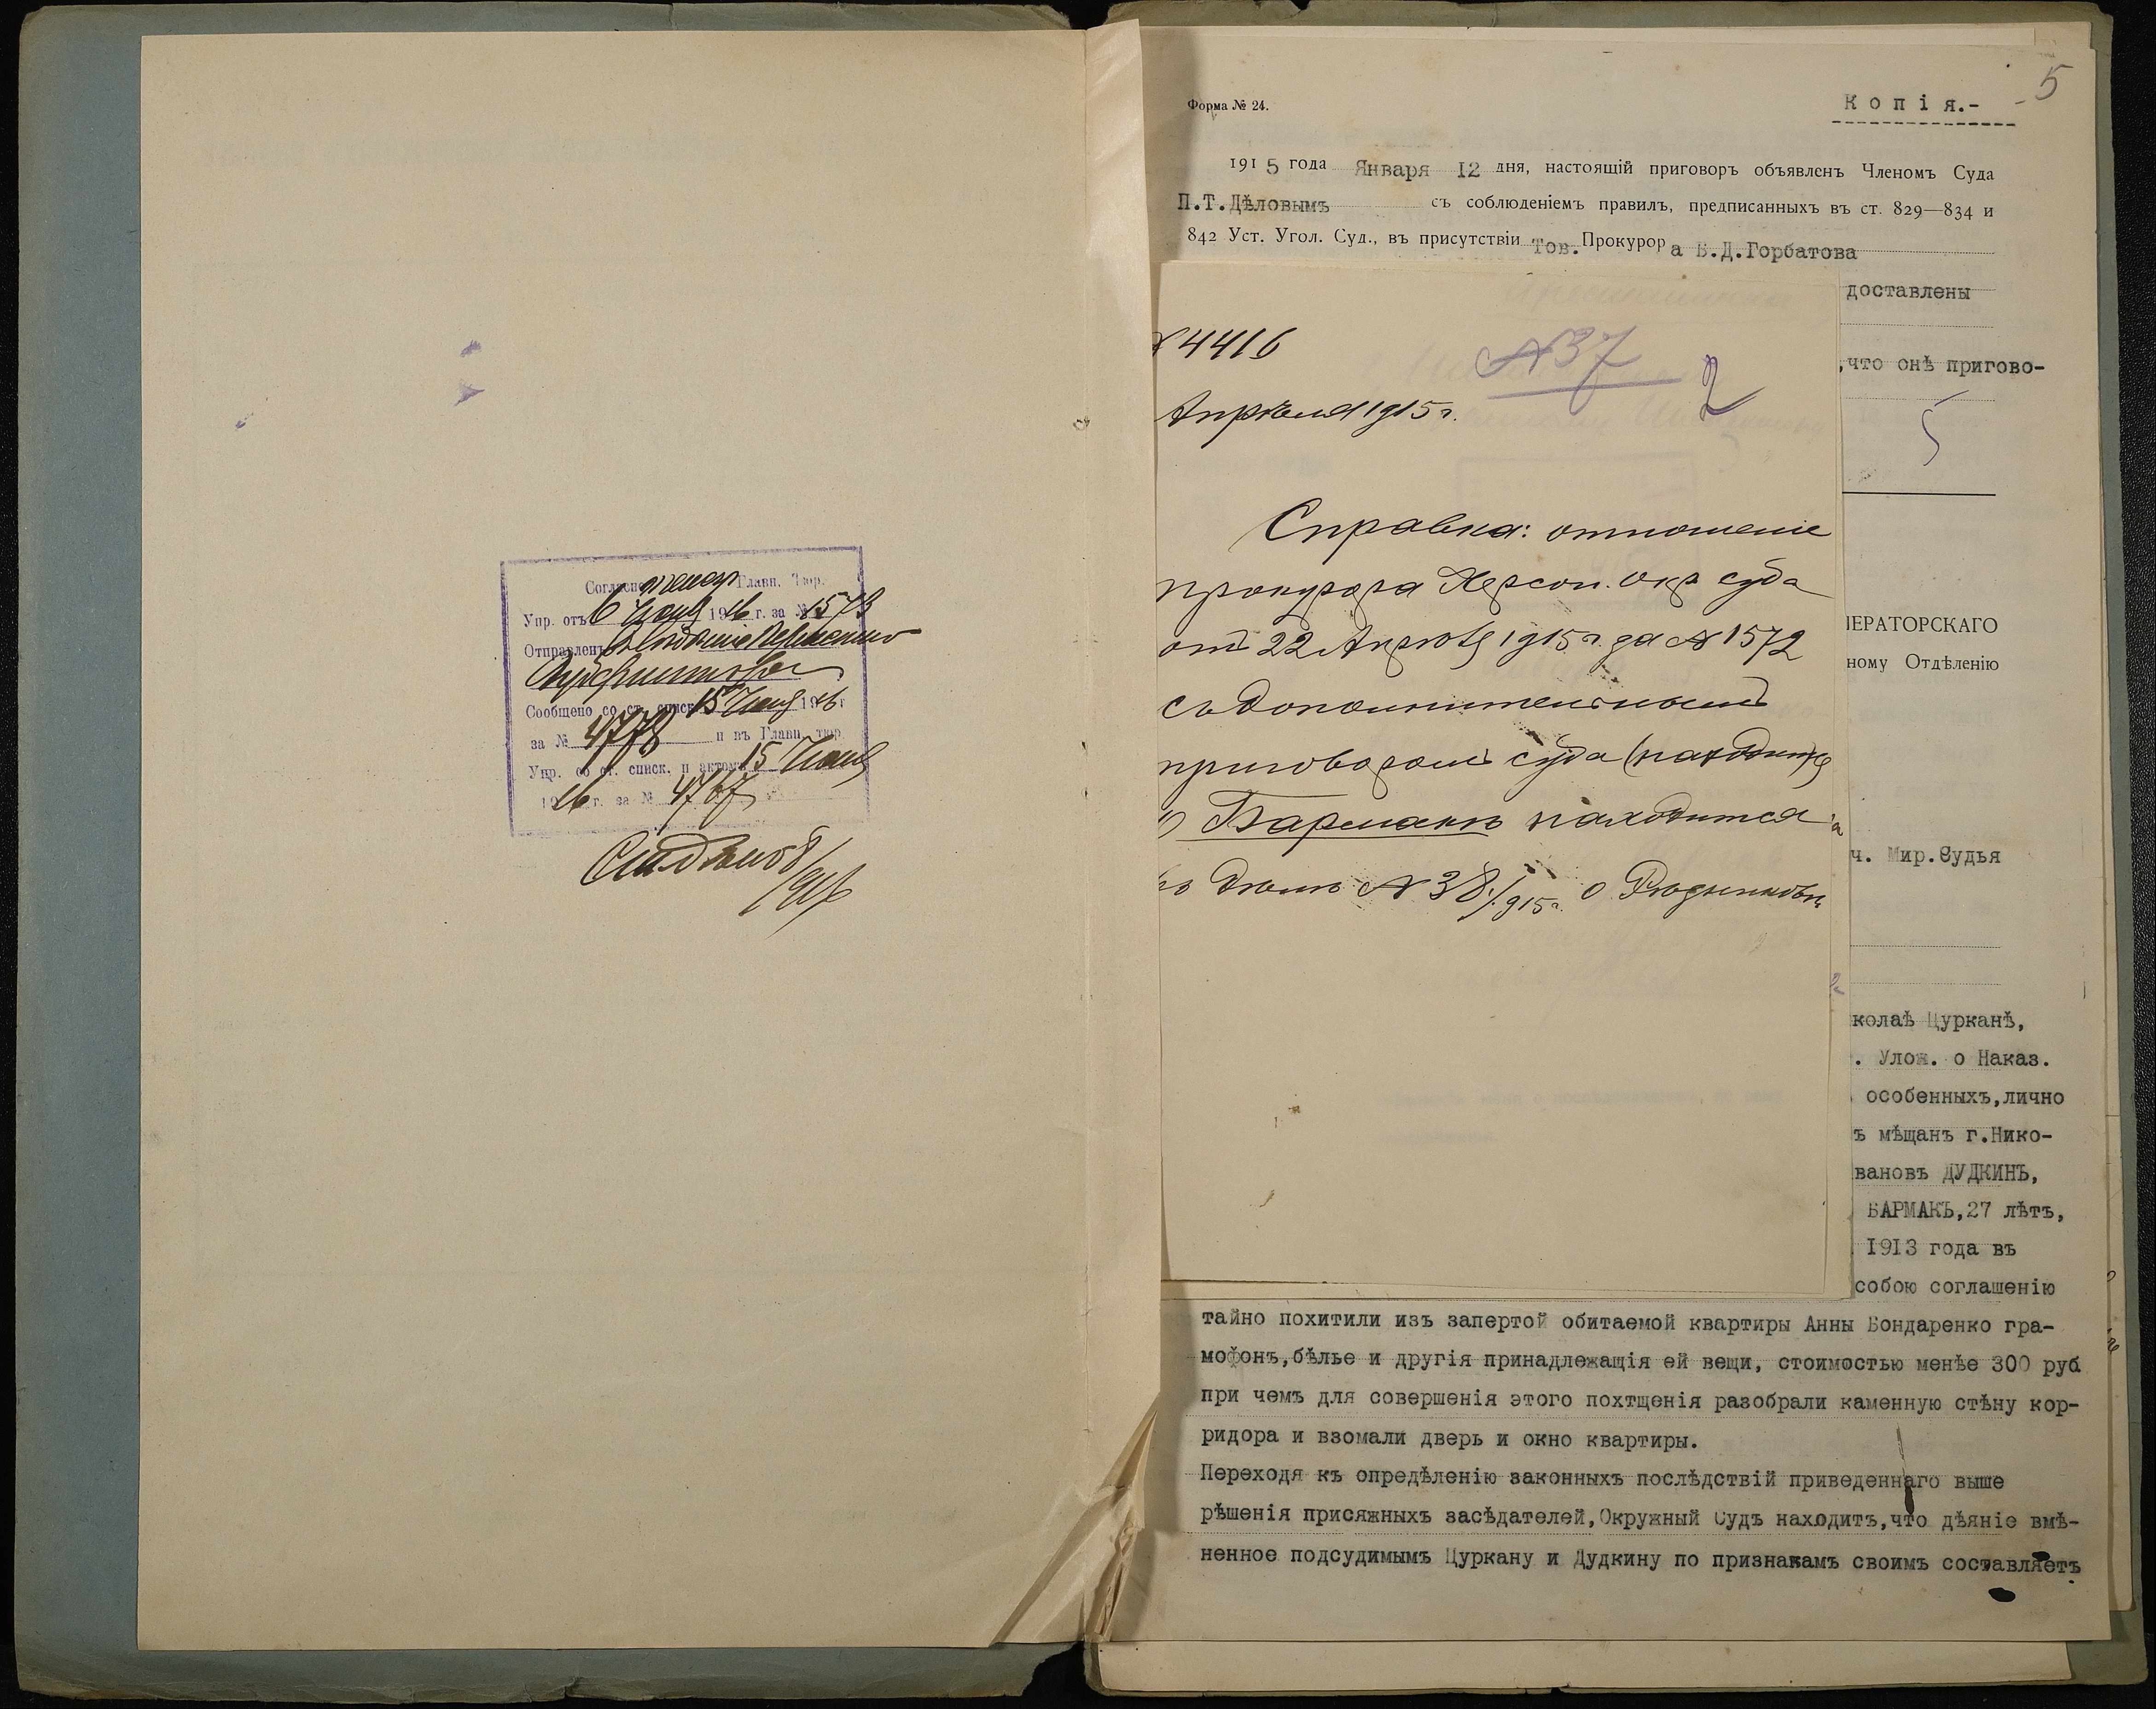 Согласно Главн. Тюр.
Упр. отъ 6 1916 г. за № 1573
Отправленъ
Сообщено со ст. списк. 15 1916 г
за № 4778 и въ Главн. тюр.
Упр. со ст. списк. и актомъ 15
1916 г. за № 4767
5
Форма № 24.
Копія.-
1915 года Января 12 дня, настоящій приговоръ объявленъ Членомъ Суда
П.Т.Дѣловымъ съ соблюденіемъ правилъ, предписанныхъ въ ст. 829—834 и
842 Уст. Угол. Суд., въ присутствіи Тов. Прокурора Б.Д.Горбатова
доставлены
,что онѣ пригово-
5
4416
№37
2
Апрѣля 1915 г.
Справка: отношеніе
прокурора Херсон. Окр суда
отъ 22 Апрѣля 1915 г. за № 1572
съ дополнительнымъ
приговоромъ суда (находится
о Бармакъ находится
дѣлѣ № 38/915 г. о
ПЕРАТОРСКАГО
ному Отдѣленію
ч. Мир.Судья
колаѣ Цурканѣ,
. Улож. о Наказ.
особенныхъ,лично
ъ мѣщанъ г.Нико-
вановъ ДУДКИНЪ,
БАРМАКЪ,27 лѣтъ,
1913 года въ
собою соглашенію
тайно похитили изъ запертой обитаемой квартиры Анны Бондаренко гра-
мофонъ,бѣлье и другія принадлежащія ей вещи, стоимостью менѣе 300 руб
при чемъ для совершенія этого похтщенія разобрали каменную стѣну кор-
ридора и взомали дверь и окно квартиры.
Переходя къ опредѣленію законныхъ послѣдствій приведеннаго выше
рѣшенія присяжныхъ засѣдателей,Окружный Судъ находитъ,что дѣяніе вмѣ-
ненное подсудимымъ Цуркану и Дудкину по признакамъ своимъ составляетъ